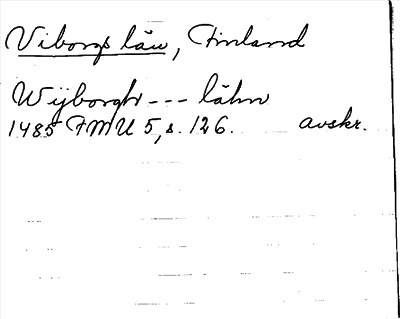 Viborgs län, Finland
Wijborgh --- lähn
1485 FMU 5, s. 126. avskr.